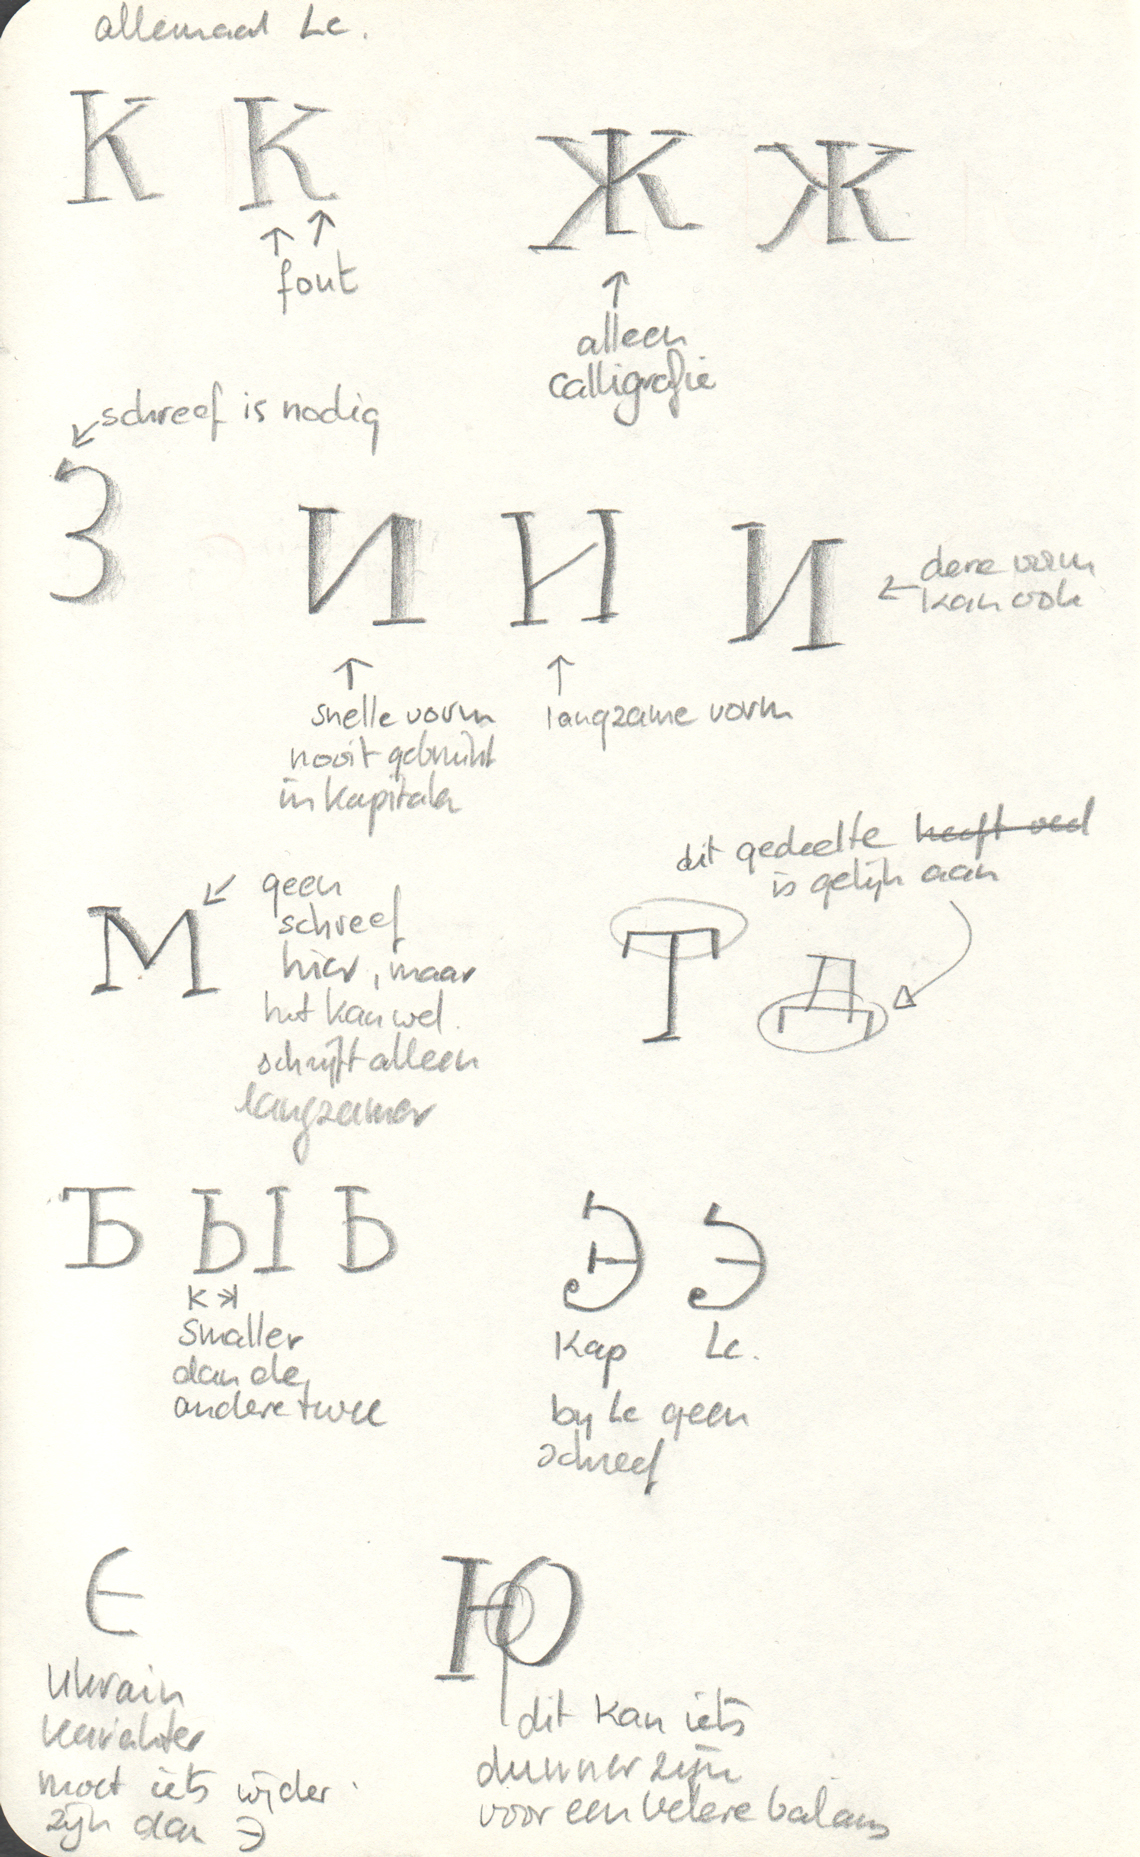 allemaal Lc.
К К Ж Ж
fout
alleen
calligrafie
schreef is nodig
З И И И
deze vorm
kan ook
snelle vorm
nooit gebruikt
in kapitalen
langzame vorm
dit gedeelte heeft veel
is gelijk aan
М Т Д
geen
schreef
hier, maar
het kan wel.
schrijft alleen
langzamer
Ъ Ы Ь Э Э
Smaller
dan de
andere twee
Kap Lc.
by Lc geen
schreef
Є Ю
Ukrain
karakter
moet iets wijder
zijn dan Э
dit kan iets
dunner zijn
voor een betere balans